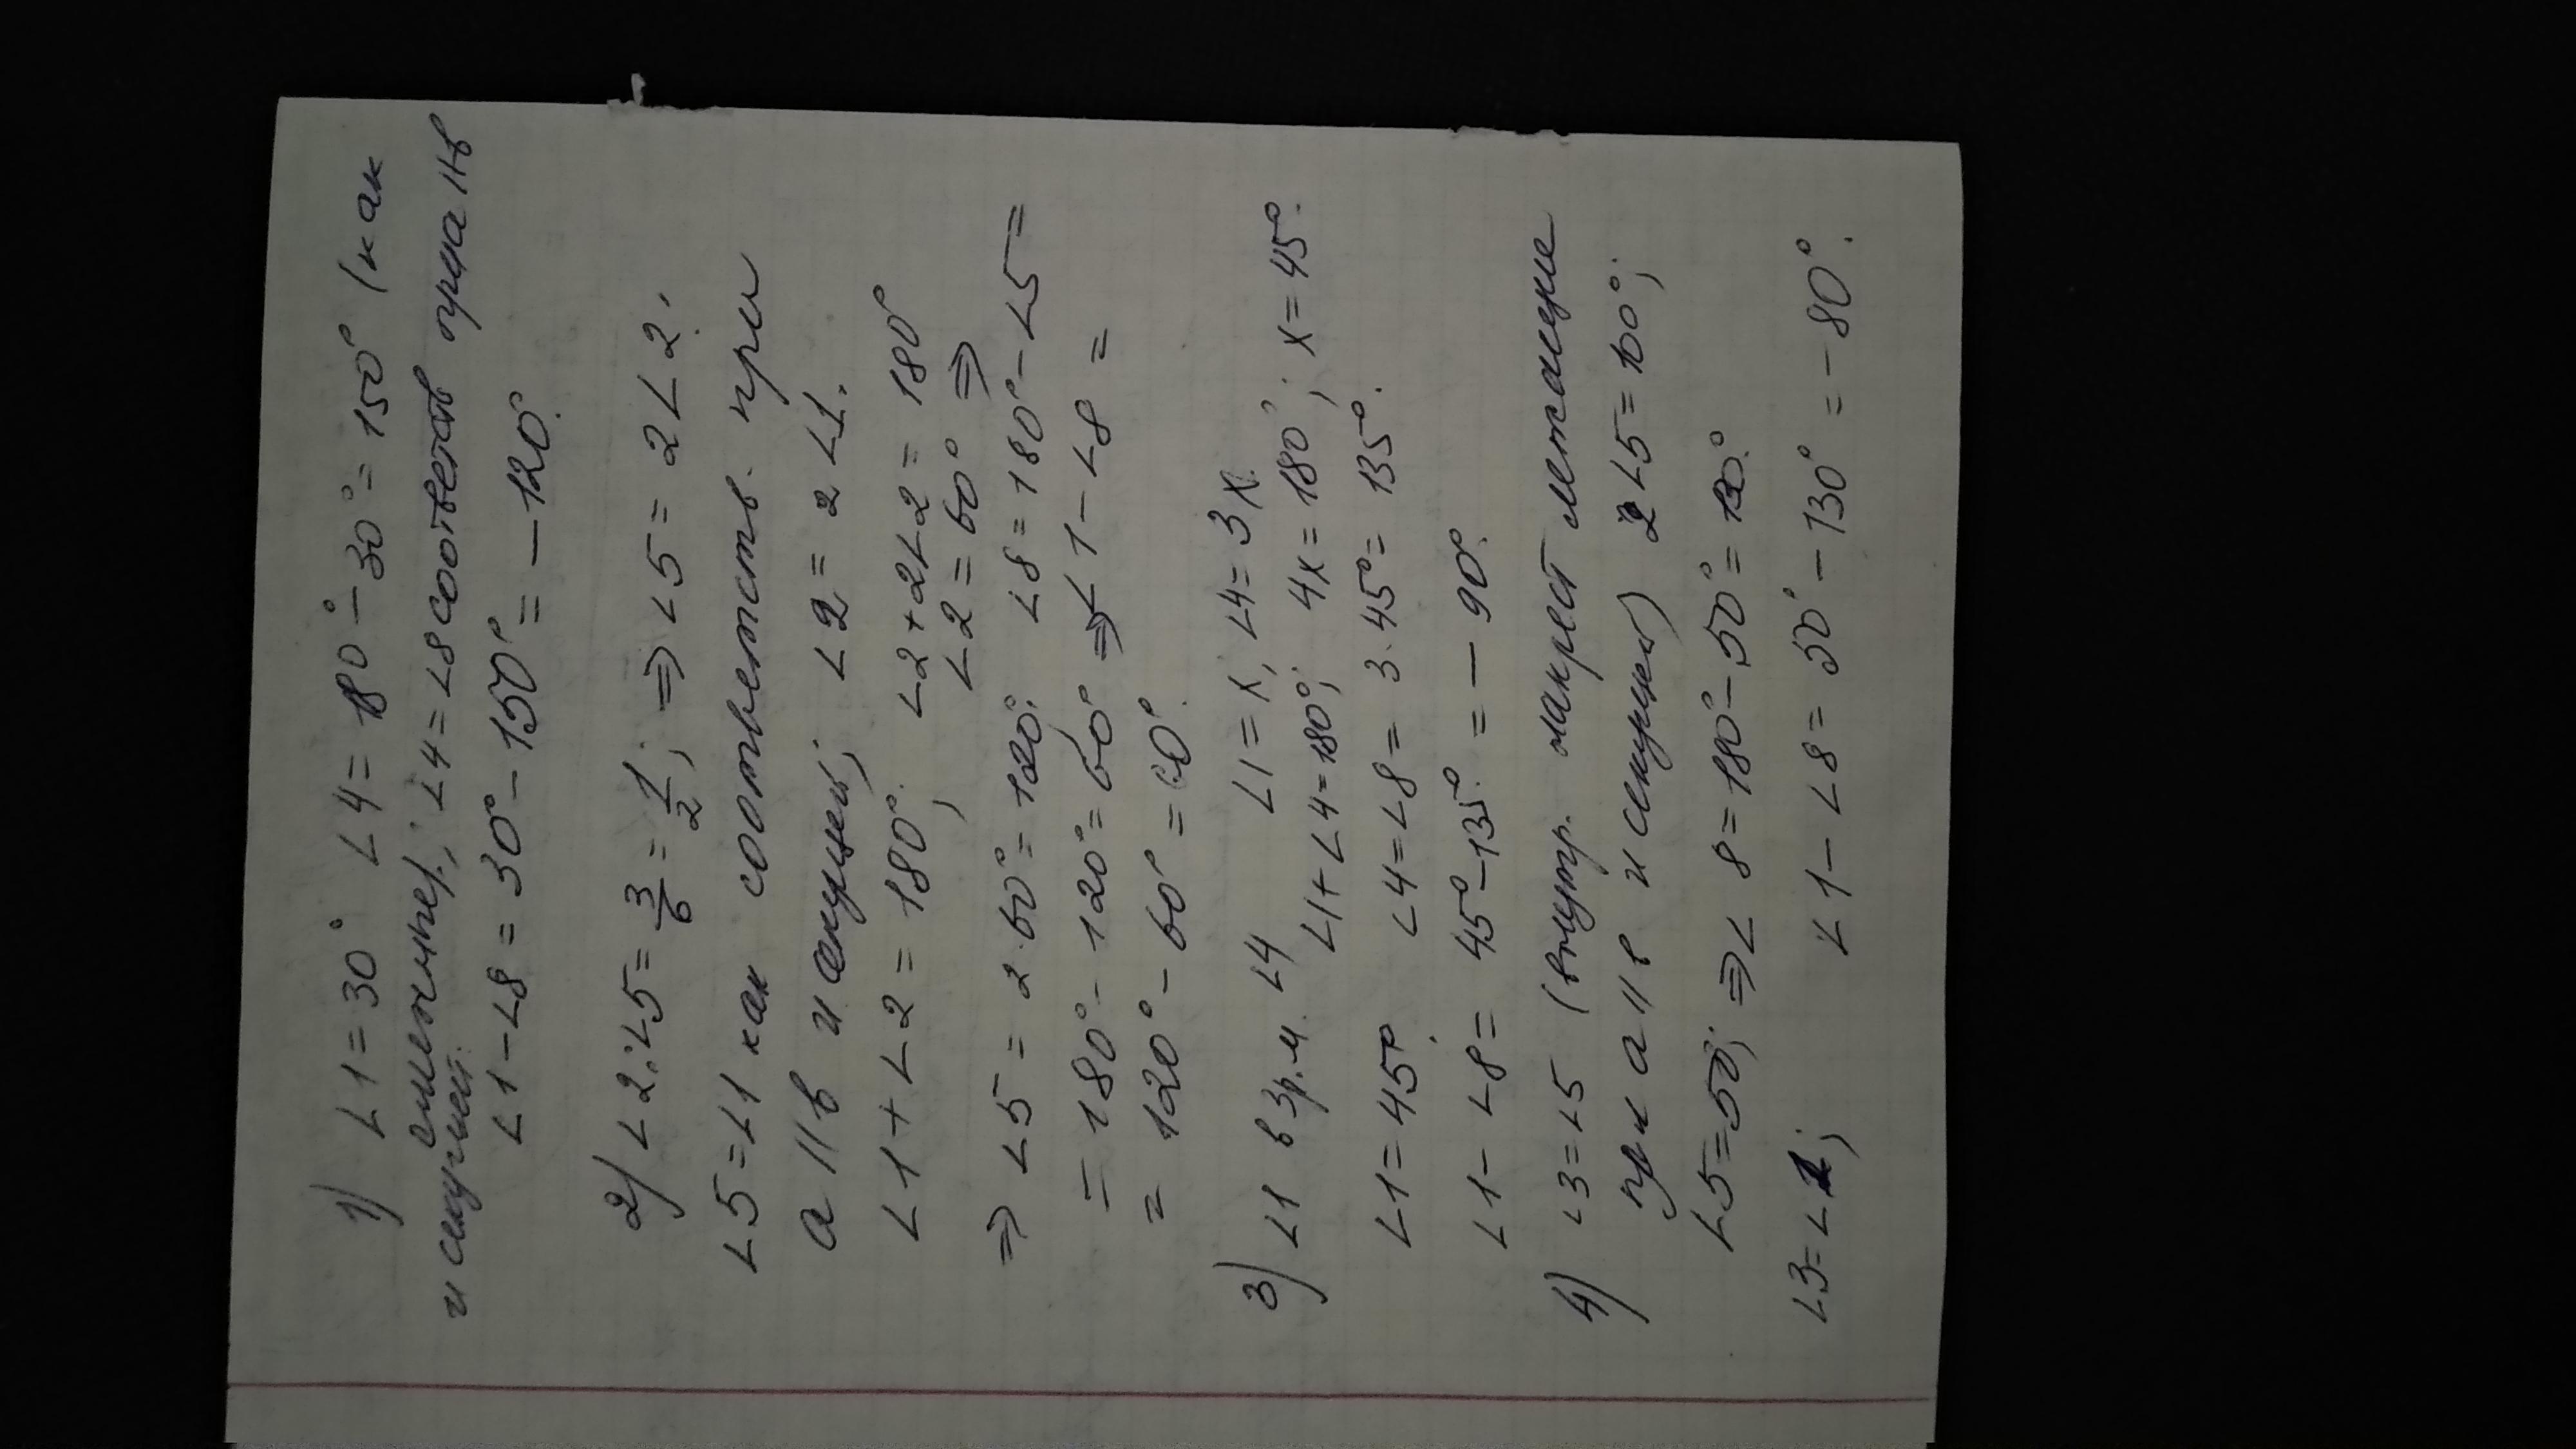 1) ∠1=30° ∠4=180°-30°=150° (как
смежные); ∠4=∠8 соответств при а||в
и секущей.
∠1-∠8=30°-150°=-120°.
2) ∠2:∠5=3/6=1/2; ⇒ ∠5=2∠2.
∠5=∠1 как соответств. при
а||в и секущей; ∠2=2∠1.
∠1+∠2=180°. ∠2+2∠2=180°
∠2=60° ⇒
⇒ ∠5=2·60°=120°; ∠8=180°-∠5=
=180°-120°=60° ⇒ ∠1-∠8=
=120°-60°=60°.
3) ∠1 в 3р.м. ∠4 ∠1=x; ∠4=3x.
∠1+∠4=180°; 4x=180°; x=45°.
∠1=45°. ∠4=∠8=3·45°=135°.
∠1-∠8=45°-135°=-90°.
4) ∠3=∠5 (внутр. накрест лежащие
при а||в и секущей) 2∠5=100°;
∠5=50; ⇒ ∠8=180°-50°=130°.
∠3=∠1; ∠1-∠8=50°-130°=-80°.